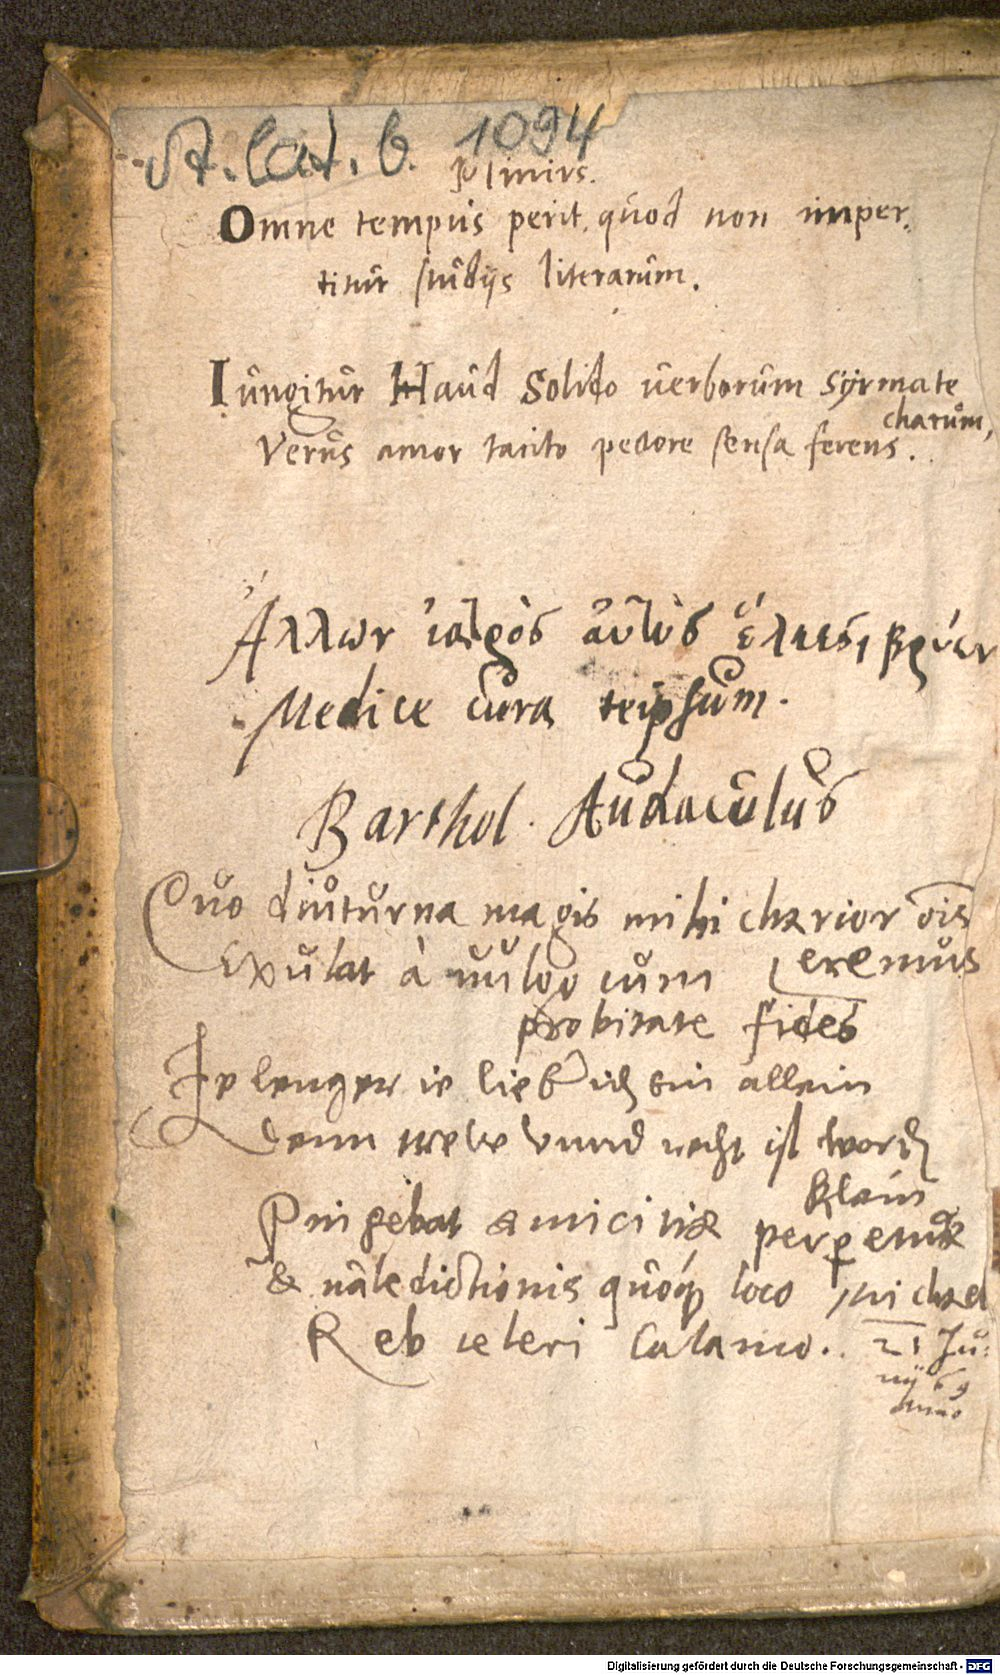 A. lat. b. 1094
Plinius.
Omne tempus perit, quod non imper-
titur studijs literarum.
Iungitur Haud Solido uerborum Syrmate
charum,
Verus amor tacito pectore sensa ferens.
Ἄλλων ἰατρὸς αὐτὸς ἕλκεσι βρύων
Medice cura teipsum.
Barthol. Audaculus
Quo diuturna magis mihi charior oīs
eremus
Exulat à uulgo cum
probitate fides
Je lenger ie lieber ich bin allein
Denn trewe vnnd recht ist worden
klain
Pingebat amicitiæ perpetuæ
& ualedictionis quoq́ loco Michael
Reb celeri Calamo. 21 Ju-
nij 69
anno
Digitalisierung gefördert durch die Deutsche Forschungsgemeinschaft - DFG